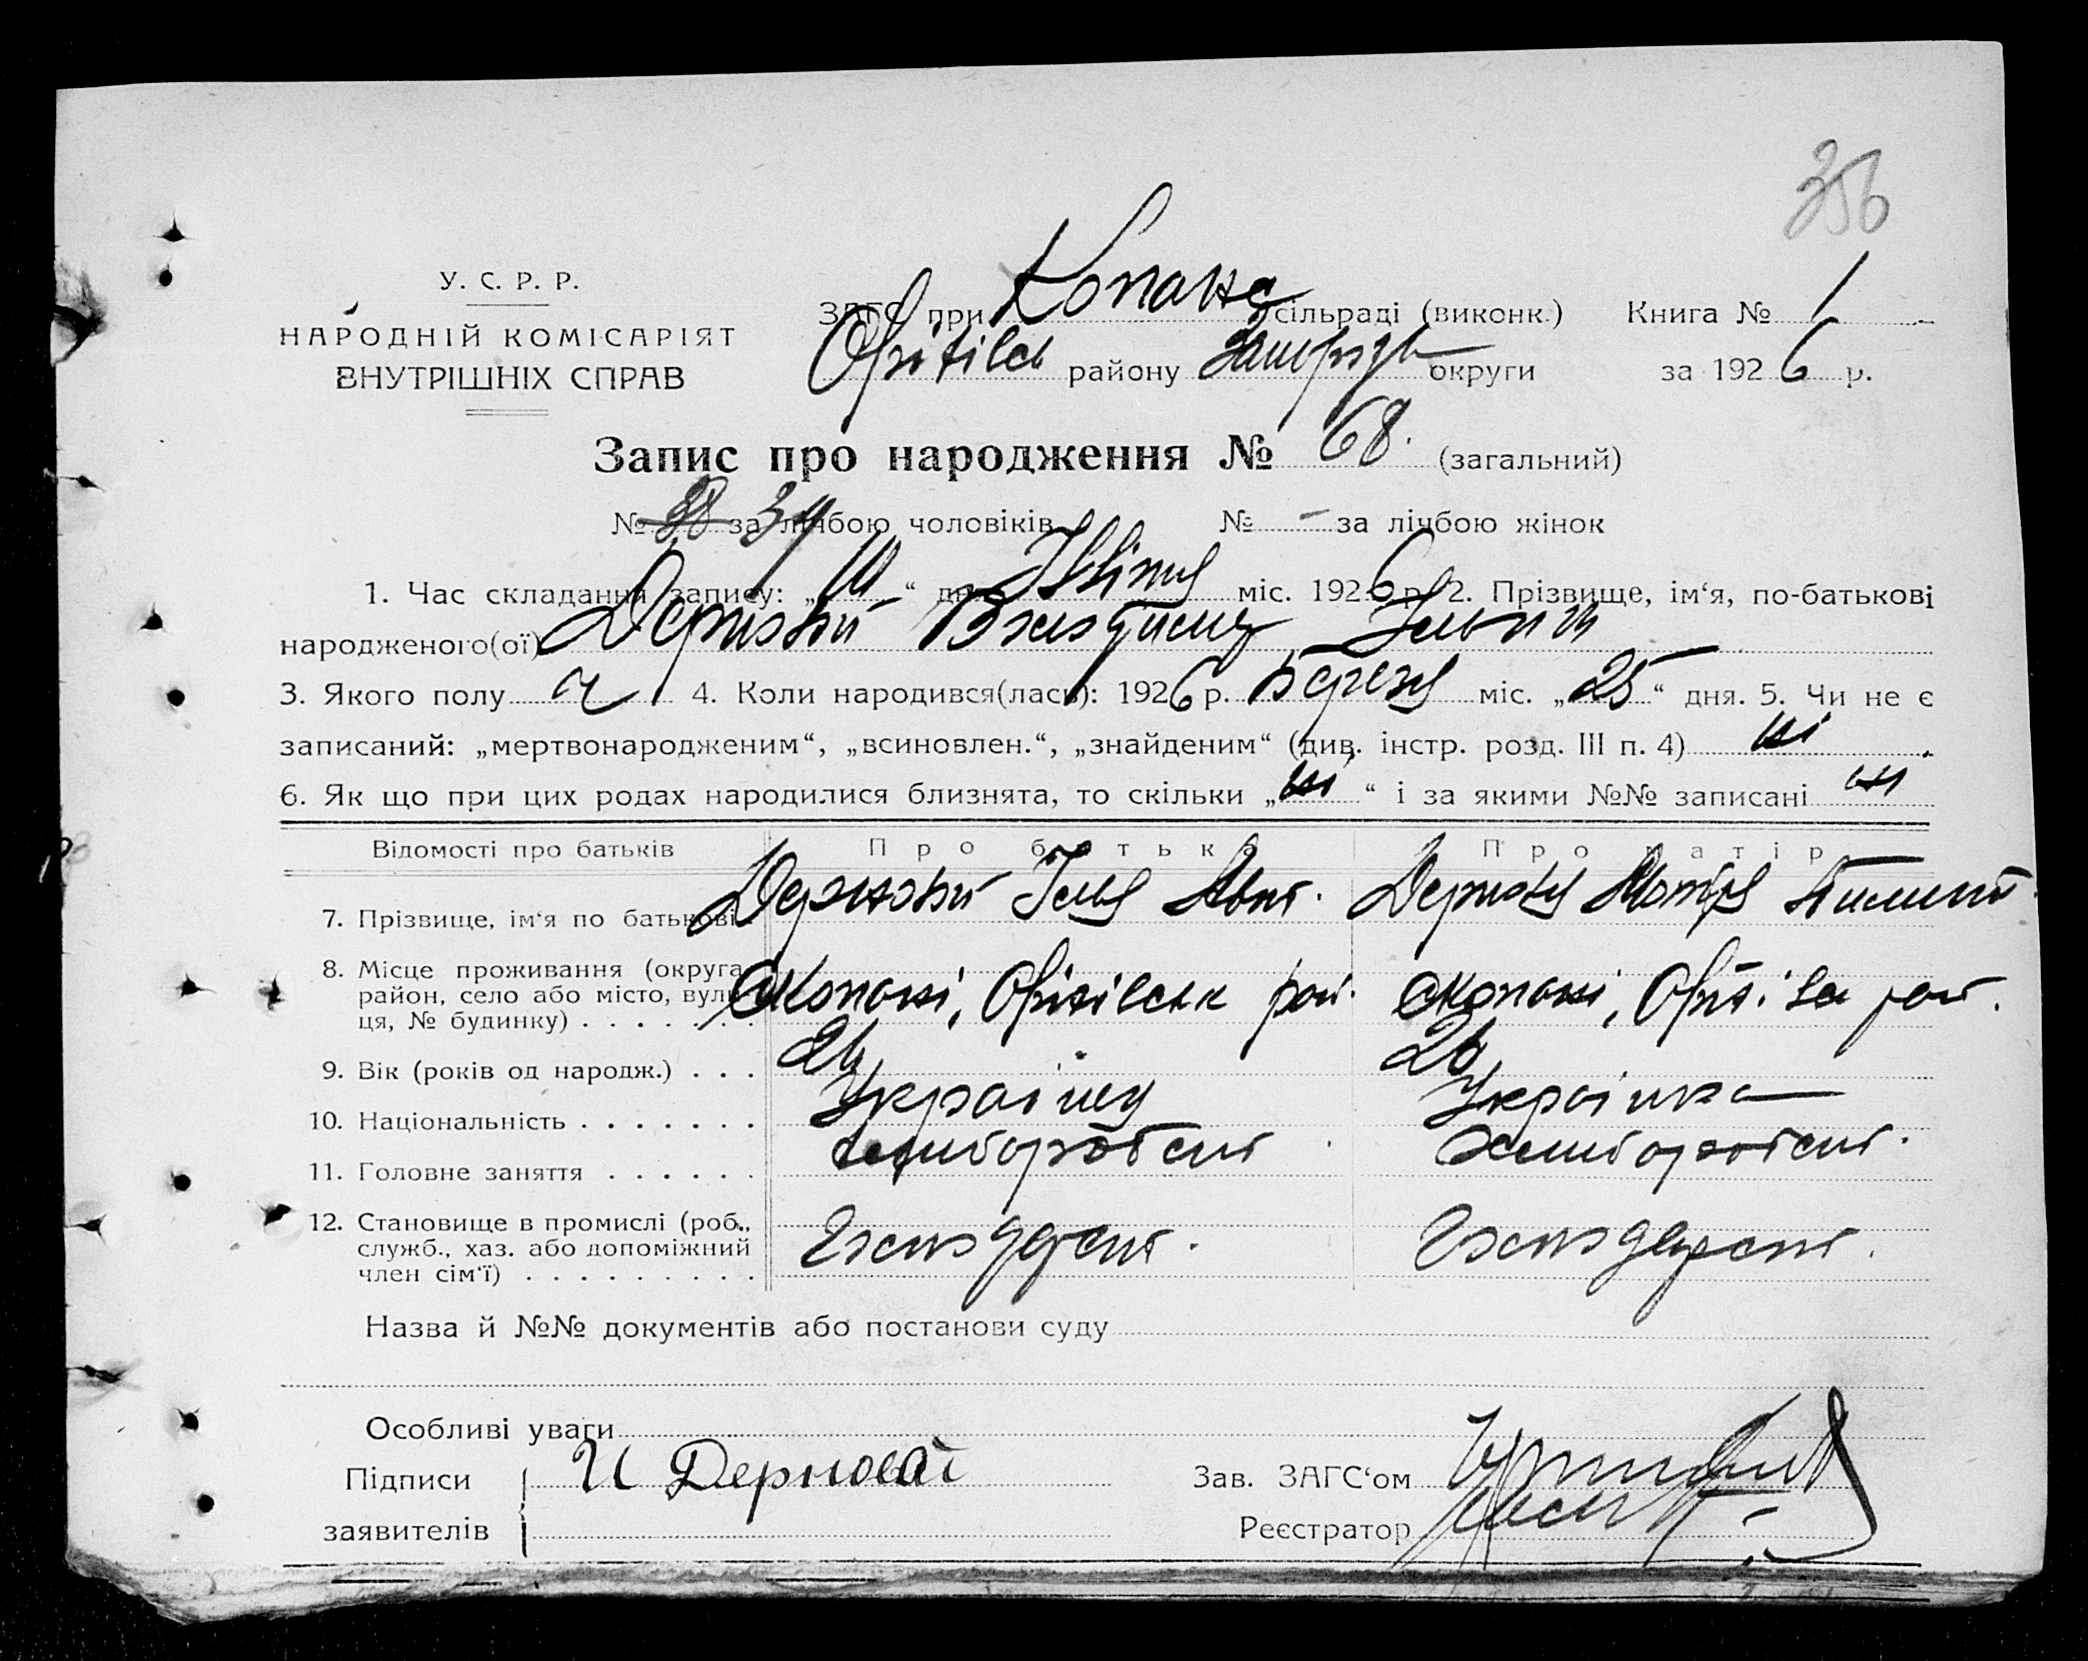 356
У. С. Р. Р.
НАРОДНІЙ КОМІСАРІЯТ
ВНУТРІШНІХ СПРАВ
ЗАГС при Копанс сільраді (виконк.) Книга № 1
Оріхівсь району Запоріз округи за 1926 р.
Запис про народження № 68. (загальний)
№ 38 34 за лічбою чоловіків № - за лічбою жінок
1. Час складання запису: „10“ дня Квітня міс. 1926 р. 2. Прізвище, ім‘я, по-батькові
народженого(ої)
3. Якого полу ч 4. Коли народився(лась): 1926 р. Березня міс. „25“ дня. 5. Чи не є
записаний: „мертвонародженим“, „всиновлен.“, „знайденим“ (див. інстр. розд. III п. 4) ні
6. Як що при цих родах народилися близнята, то скільки „ні“ і за якими №№ записані ні
Відомості про батьків Про батька Про матір
7. Прізвище, ім‘я по батькові Дерновий Ілля Дернова Мотря
8. Місце проживання (округа
район, село або місто, вули-
ця, № будинку) Копані, Оріхівськ рай. Копані, рай.
9. Вік (років од народж.) 26
10. Національність Українец Українка
11. Головне заняття хліборобств хліборобств.
12. Становище в промислі (роб.,
служб., хаз. або допоміжний
член сім‘ї)
Назва й №№ документів або постанови суду
Особливі уваги
Підписи И Дерновой Зав. ЗАГС‘ом
заявителів Реєстратор